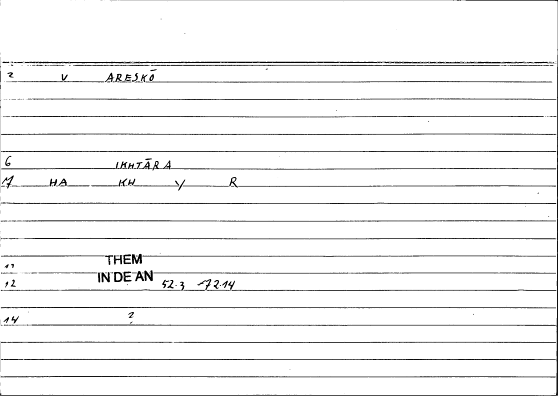 2 V ARESKŌ
6 IKHTĀRA
7 HA KH Y R
11 THEM
12 IN DE AN 52.3 72.14
14 ?